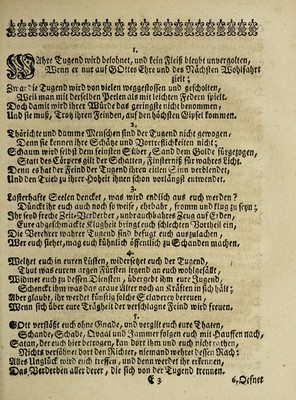 1.
Wahre Tugend wird belohnet, und kein Fleiß bleybt unvergolten,
Wenn er nur auf GOttes Ehre und des Nächsten Wohlfahrt
zielt;
Zwar die Tugend wird von vielen weggestossen und gescholten,
Weil man mit derselben Perlen als mit leichten Federn spielt.
Doch damit wird ihrer Würde das geringste nicht benommen,
Und sie muß, Trotz ihren Feinden, auf den höchsten Gipfel kommen.
2.
Thörichte und dumme Menschen sind der Tugend nicht gewogen,
Denn sie kennen ihre Schätze und Vortreflichkeiten nicht;
Schaum wird selbst dem feinsten Silber, Sand dem Golde fürgezogen,
Statt des Cörpers gilt der Schatten, Finsterniß für wahres Licht.
Denn es hat der Feind der Tugend ihren eitlen Sinn verblendet,
Und den Trieb zu ihrer Hoheit ihnen schon vorlängst entwendet.
3.
Lasterhafte Seelen dencket, was wird endlich aus euch werden?
Dünckt ihr euch auch noch so weise, ehrbahr, fromm und klug zu seyn;
Ihr seyd freche Zeit-Verderber, unbrauchbahres Zeug auf Erden,
Eure abgeschmackte Klugheit bringt euch schlechten Vortheil ein,
Die Verehrer wahrer Tugend sind befugt euch auszulachen,
Wer euch siehet, mag euch kühnlich öffentlich zu Schanden machen.
4.
Weltzet euch in euren Lüsten, widersetzet euch der Tugend,
Thut was eurem argen Fürsten irgend an euch wohlgefällt,
Widmet euch zu dessen Diensten, übergebt ihm eure Jugend,
Schenckt ihm was das graue Alter noch an Kräften in sich hält;
Aber glaubt, ihr werdet künftig solche Sclaverey bereuen,
Wenn sich über eure Trägheit der verschlagne Feind wird freuen.
5.
GOtt verstößt euch ohne Gnade, und vergilt euch eure Thaten,
Schande, Schade, Qvaal und Jammer folgen euch mit Hauffen nach,
Satan, der euch hier betrogen, kan dort ihm und euch nicht rathen,
Nichts versöhnet dort den Richter, niemand wehret dessen Rach;
Alles Unglück wird euch treffen, und denn werdet ihr erkennen,
Das Verderben aller derer, die sich von der Tugend trennen.
C 3
6. Oefnet